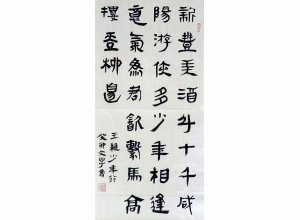 新豐美酒斗十千咸
陽游俠多少年相逢
意氣為君飲繫馬高
樓垂柳邊
王維少年行
癸卯文書